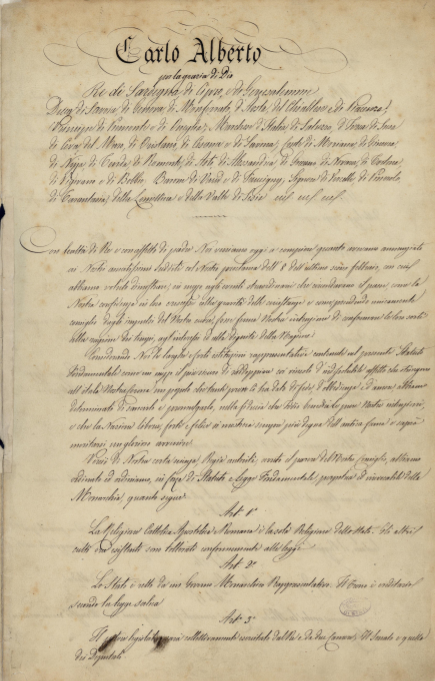 Carlo Alberto
per la grazia di Dio
Re di Sardegna, di Cipro, e di Gerusalemme
Duca di Savoia, di Genova, di Monferrato, d'Aosta, del Chiablese, e di Piacenza;
Principe di Piemonte e di Oneglia; Marchese d'Italia, di Saluzzo, d'Ivrea, di Susa,
di Ceva, del Maro, di Oristano, di Cesana e di Savona; Conte di Moriana, di Ginevra,
di Nizza, di Tenda, di Romonte, di Asti, di Alessandria, di Goceano, di Novara, di Tortona,
di Vigevano e di Bobbio; Barone di Vaud e di Faucigny; Signore di Vercelli, di Pinerolo,
di Tarantasia, della Lomellina e della Valle di Sesia
Con lealtà di Re e con affetto di padre Noi veniamo oggi a compiere quanto avevamo annunziato
ai Nostri amatissimi sudditi col Nostro proclama dell'8 dell'ultimo scorso febbraio, con cui
abbiamo voluto dimostrare, in mezzo agli eventi straordinarii che circondavano il paese, come la
Nostra confidenza in loro crescesse colla gravità delle circostanze, e come prendendo unicamente
consiglio dagli impulsi del Nostro cuore, fosse ferma Nostra intenzione di conformare le loro sorti
alla ragione dei tempi, agli interessi ed alla dignità della Nazione.
Considerando Noi le larghe e forti istituzioni rappresentative contenute nel presente Statuto
Fondamentale come un mezzo il più sicuro di raddoppiare coi vincoli d'indissolubile affetto che stringono
all'itala Nostra Corona un popolo, che tante prove Ci ha dato di fede, d'obbedienza e d'amore, abbiamo
determinato di sancirlo e promulgarlo, nella fiducia che Iddio benedirà le pure Nostre intenzioni,
e che la Nazione libera, forte e felice si mostrerà sempre più degna dell'antica fama e saprà
meritarsi un glorioso avvenire.
Perciò di Nostra certa scienza, Regia autorità, avuto il parere del Nostro Consiglio, abbiamo
ordinato ed ordiniamo, in forza di Statuto e Legge Fondamentale, perpetua ed irrevocabile della
Monarchia, quanto segue
Art. 1°
La Religione Cattolica, Apostolica e Romana è la sola Religione dello Stato. Gli altri
culti ora esistenti sono tollerati conformemente alle leggi.
Art. 2°
Lo Stato è retto da un Governo Monarchico Rappresentativo. Il Trono è ereditario
secondo la legge salica
Art. 3°
Il potere legislativo sarà collettivamente esercitato dal Re e da due Camere; il Senato, e quella
dei Deputati.